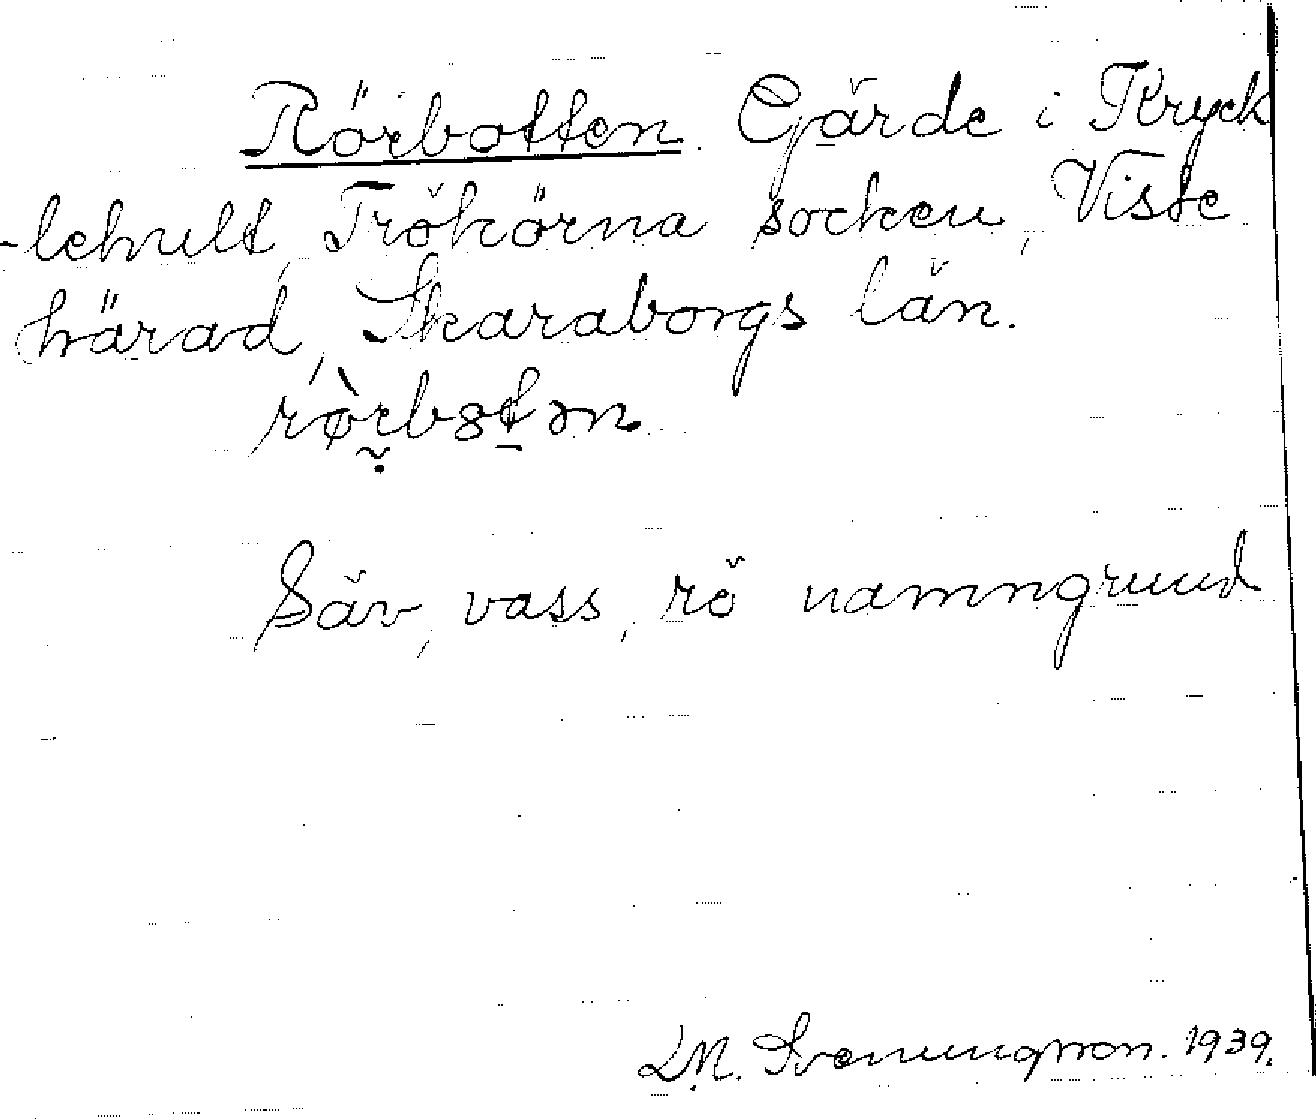 Rörbotten. Gärde i Kryck
-lehult, Trökörna socken, Viste
härad, Skaraborgs län.
Säv, vass, rö namngrund
D.M. Svenungsson. 1939.